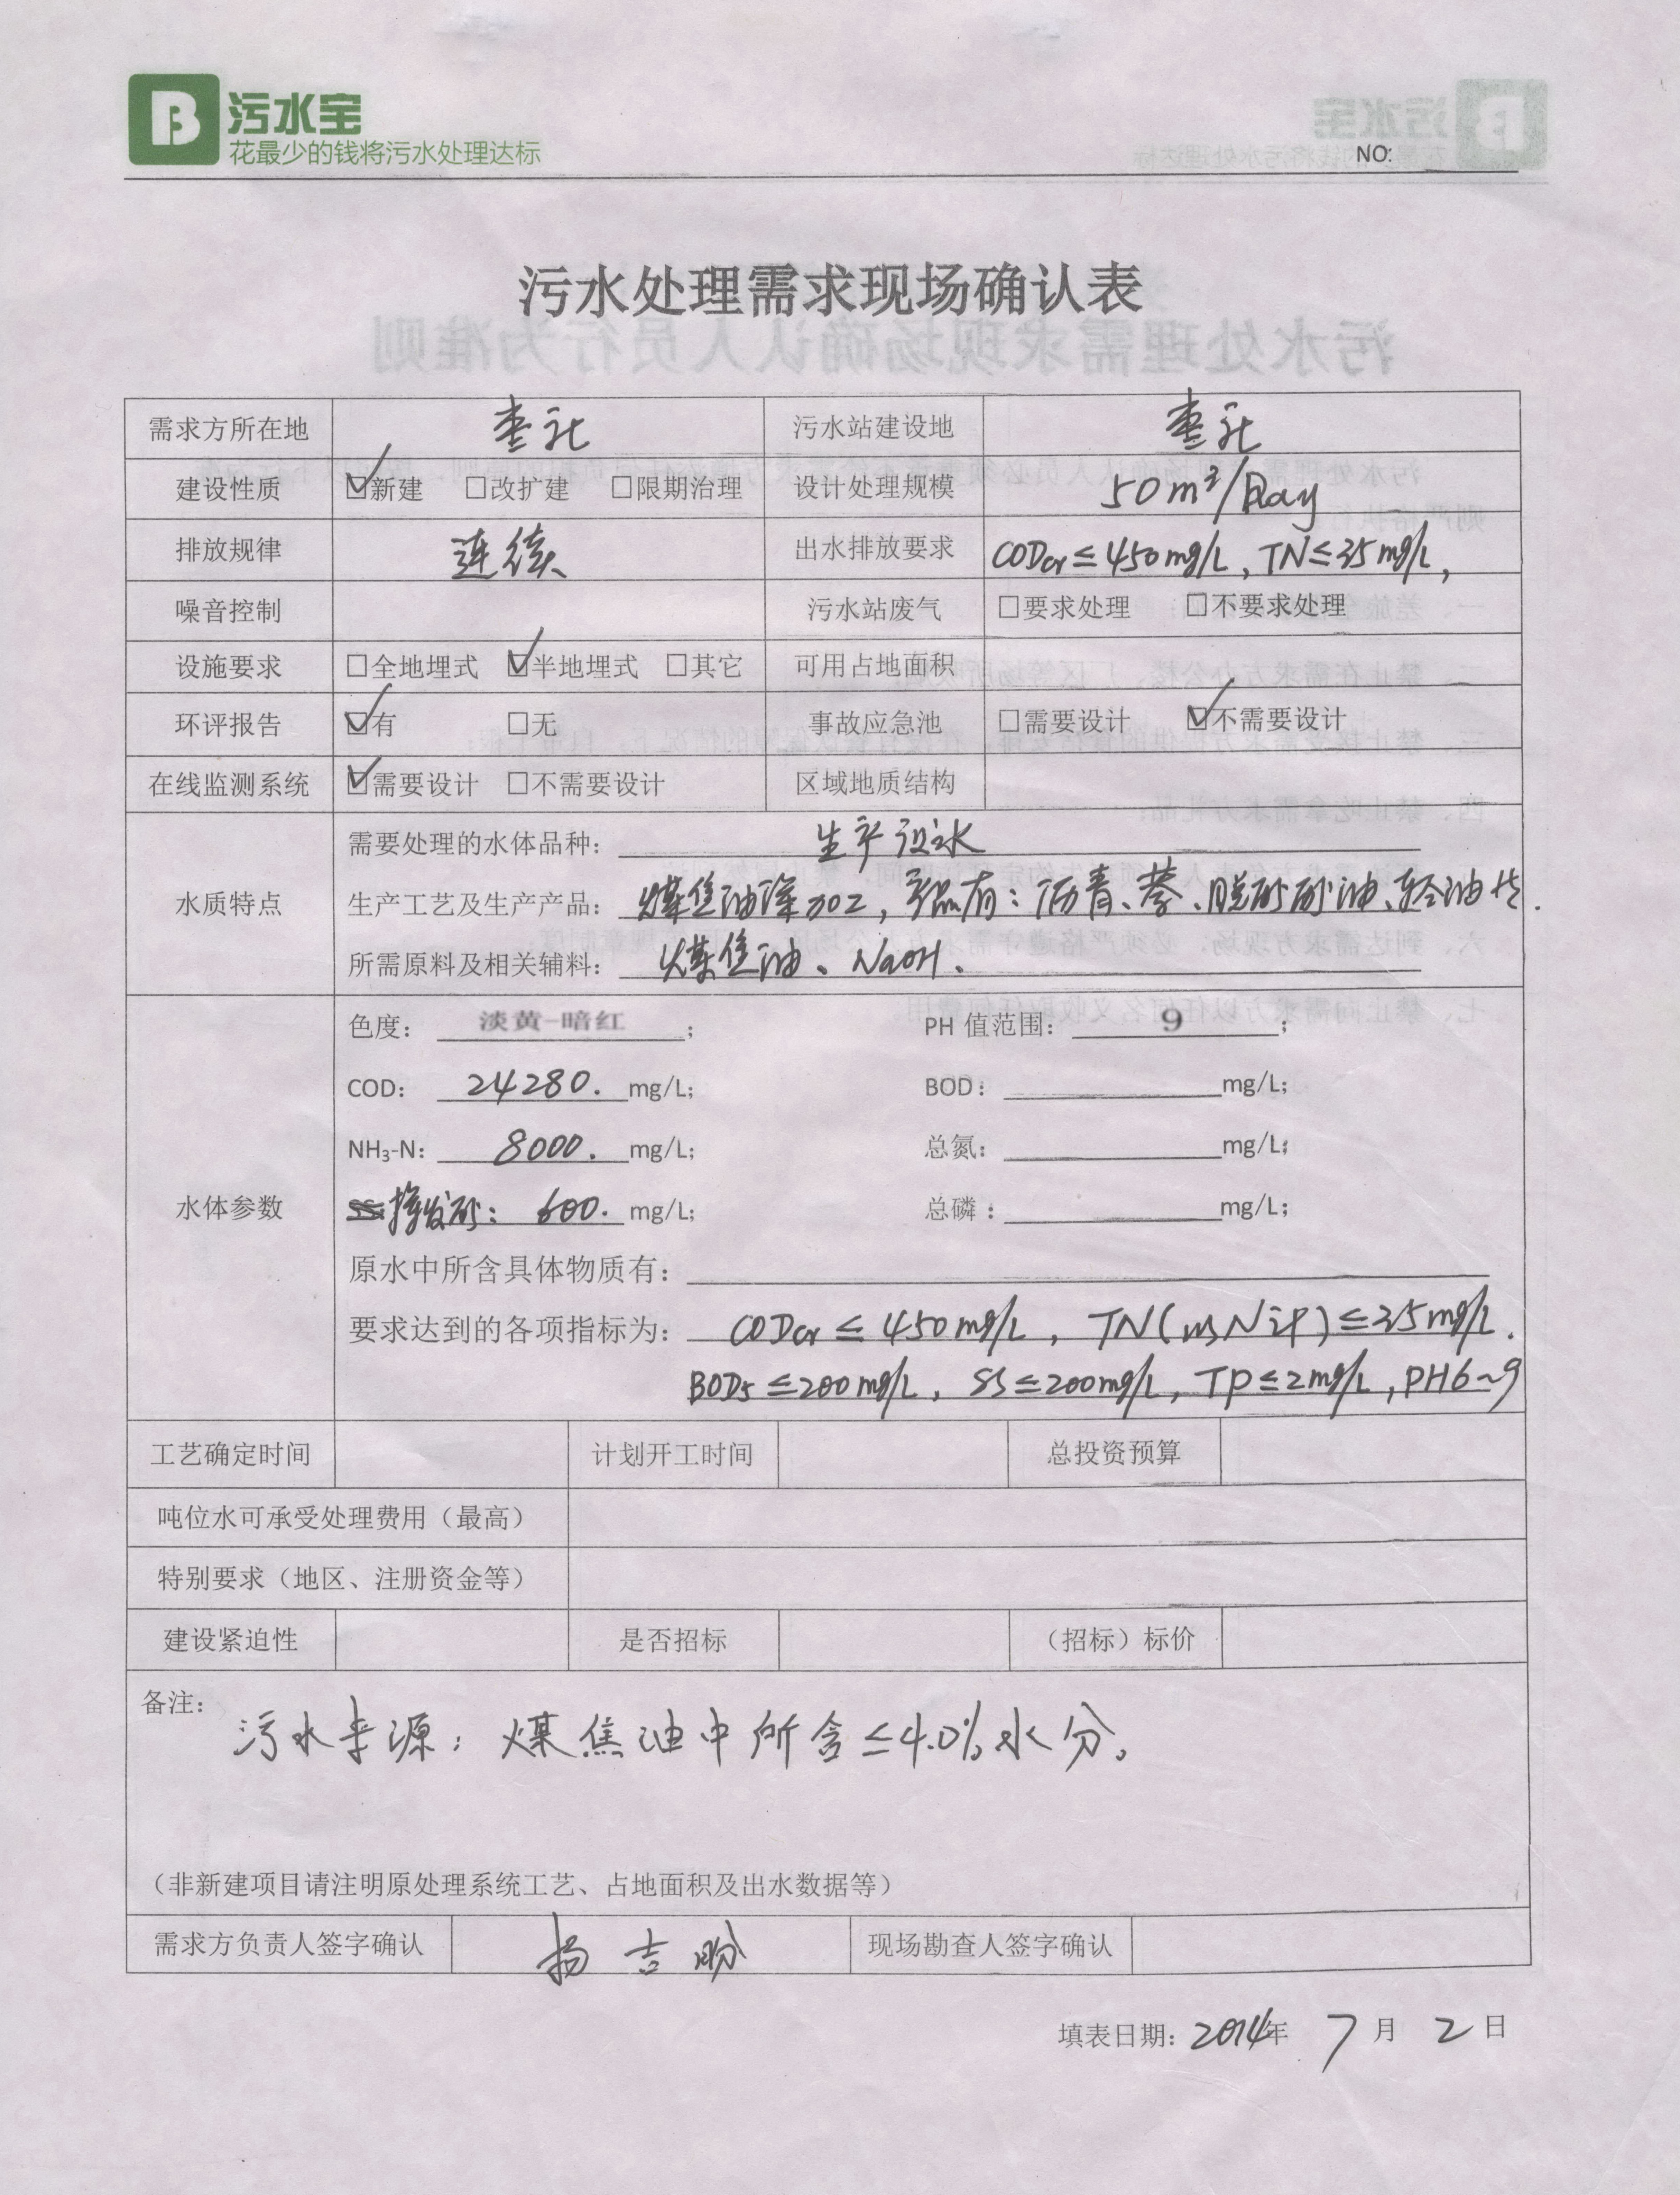 污水宝
花最少的钱将污水处理达标
NO:
污水处理需求现场确认表
需求方所在地 枣庄 污水站建设地 枣庄
建设性质 ☑新建 □改扩建 □限期治理 设计处理规模 50m³/Day
排放规律 连续 出水排放要求 CODcr≤450mg/L, TN≤35mg/L,
噪音控制 污水站废气 □要求处理 □不要求处理
设施要求 □全地埋式 ☑半地埋式 □其它 可用占地面积
环评报告 ☑有 □无 事故应急池 □需要设计 ☑不需要设计
在线监测系统 ☑需要设计 □不需要设计 区域地质结构
水质特点
需要处理的水体品种: 生产污水
生产工艺及生产产品: 煤焦油深加工, 产品有: 沥青、蒽、脱酚酚油、轻油
所需原料及相关辅料: 煤焦油、NaOH、
水体参数
色度: 淡黄-暗红; PH 值范围: 9;
COD: 24280. mg/L; BOD: mg/L;
NH₃-N: 8000. mg/L; 总氮: mg/L;
挥发酚: 600. mg/L; 总磷: mg/L;
原水中所含具体物质有:
要求达到的各项指标为: CODcr≤450mg/L, TN(以N计)≤35mg/L.
BOD5≤200mg/L, SS≤200mg/L, TP≤2mg/L, PH6~9
工艺确定时间 计划开工时间 总投资预算
吨位水可承受处理费用（最高）
特别要求（地区、注册资金等）
建设紧迫性 是否招标 （招标）标价
备注:
污水来源: 煤焦油中所含≤4.0%水分。
（非新建项目请注明原处理系统工艺、占地面积及出水数据等）
需求方负责人签字确认 杨吉 现场勘查人签字确认
填表日期: 2014年 7月 2日